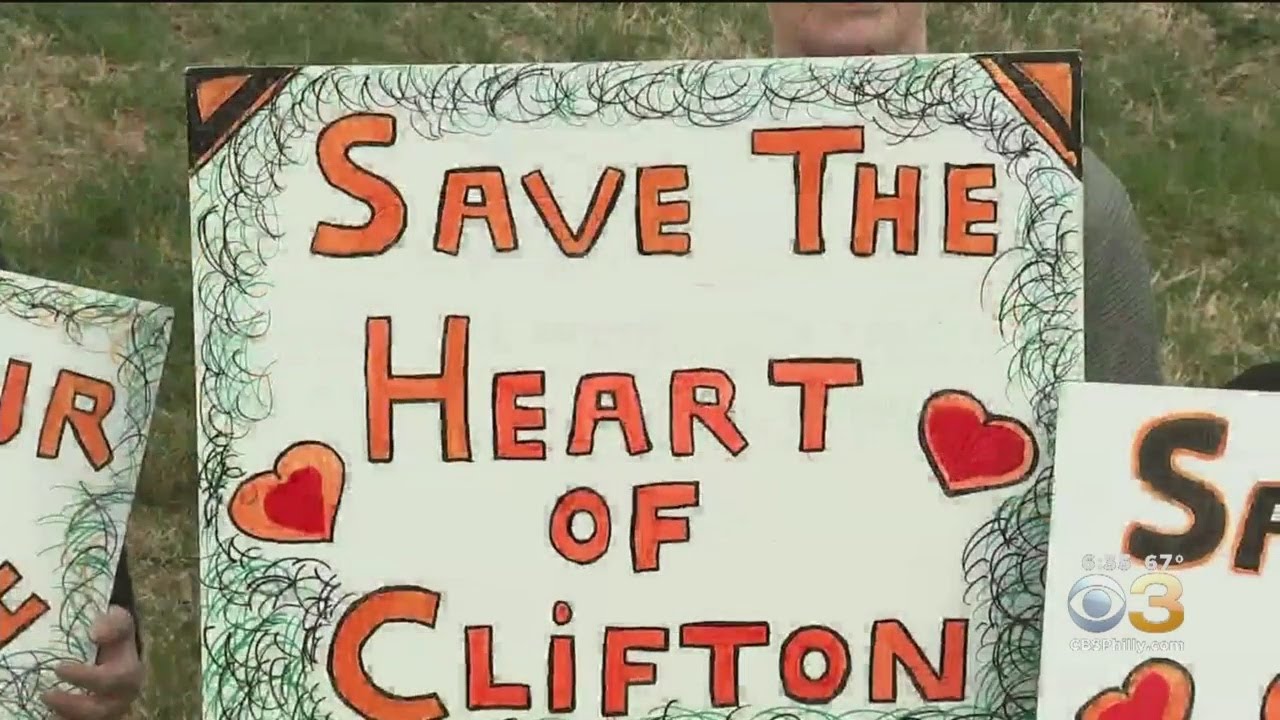 SAVE THE
HEART
OF
CLiFTON
UR
SA
6:35 67°
3
CBSPhilly.com